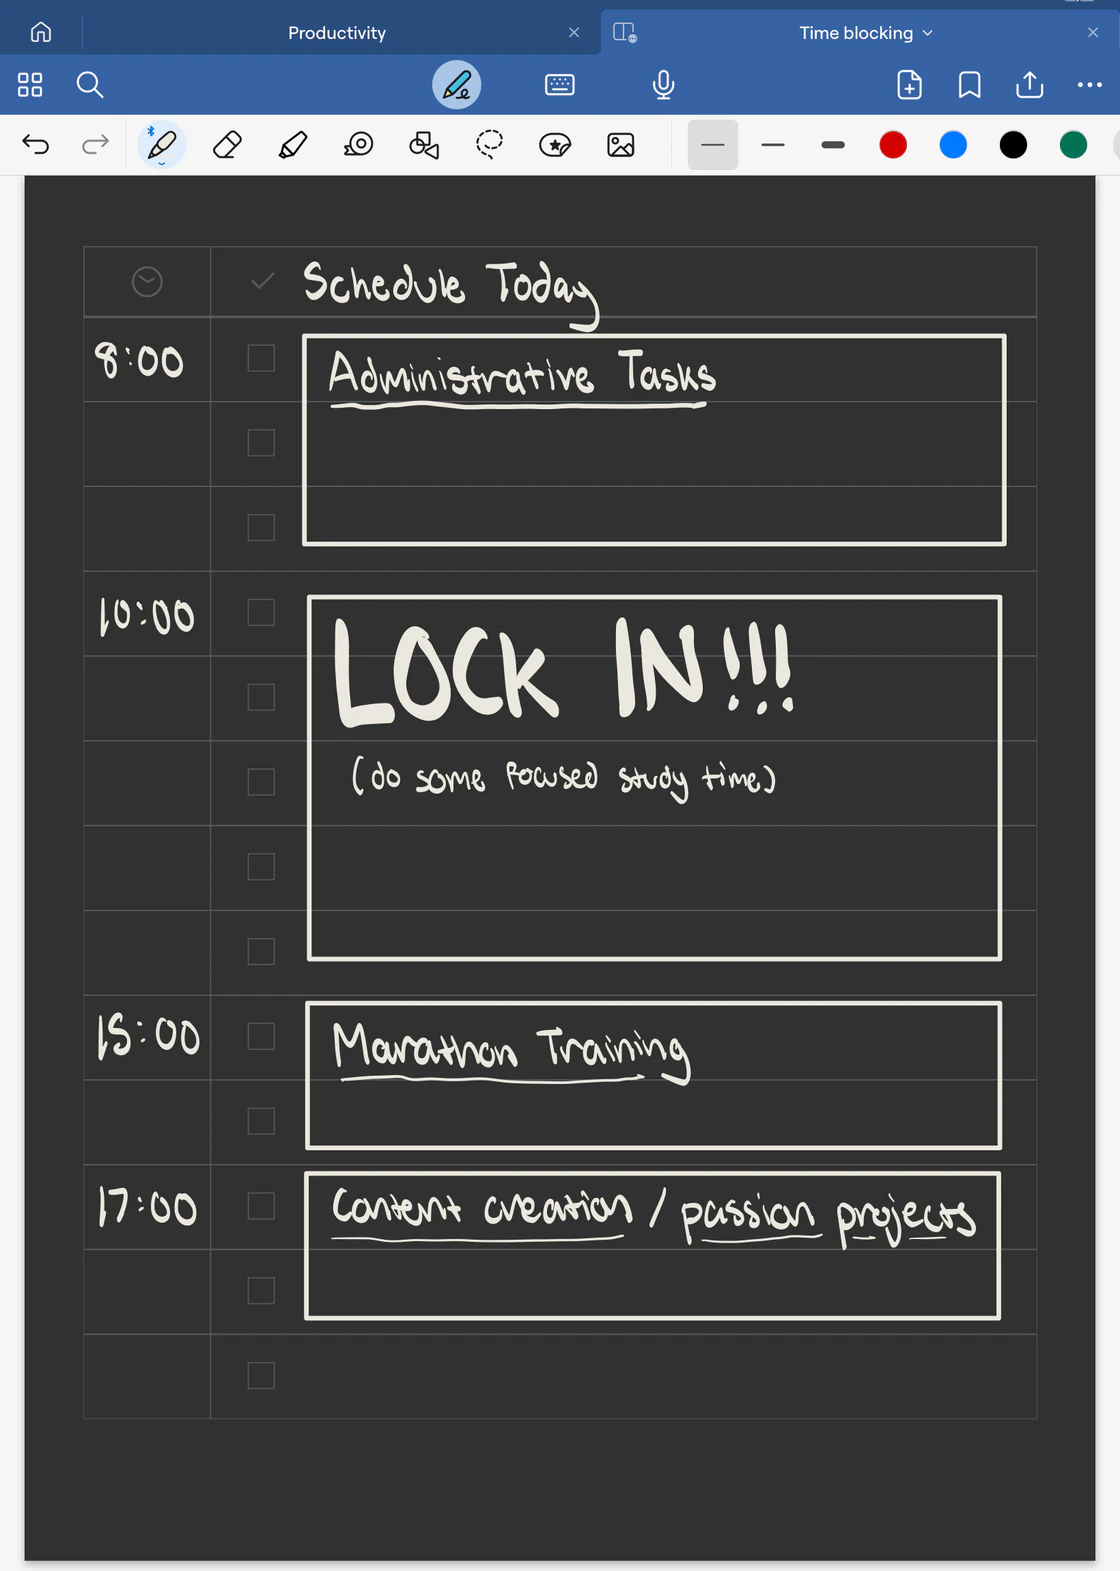 Productivity
Time blocking
Schedule Today
8:00
Administrative Tasks
10:00
LOCK IN!!!
(do some focused study time)
15:00
Marathon Training
17:00
Content creation / passion projects